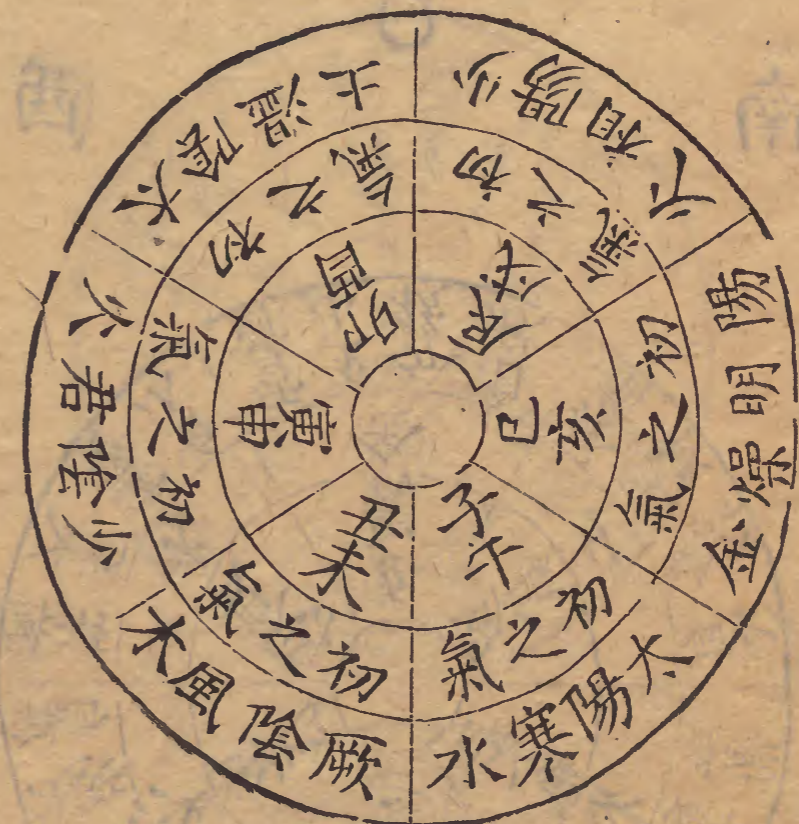 子午
初之氣
太陽寒水
丑未
初之氣
厥陰風木
寅申
初之氣
少陰君火
卯酉
初之氣
太陰溫土
辰戌
初之氣
少陽相火
巳亥
初之氣
陽明燥金